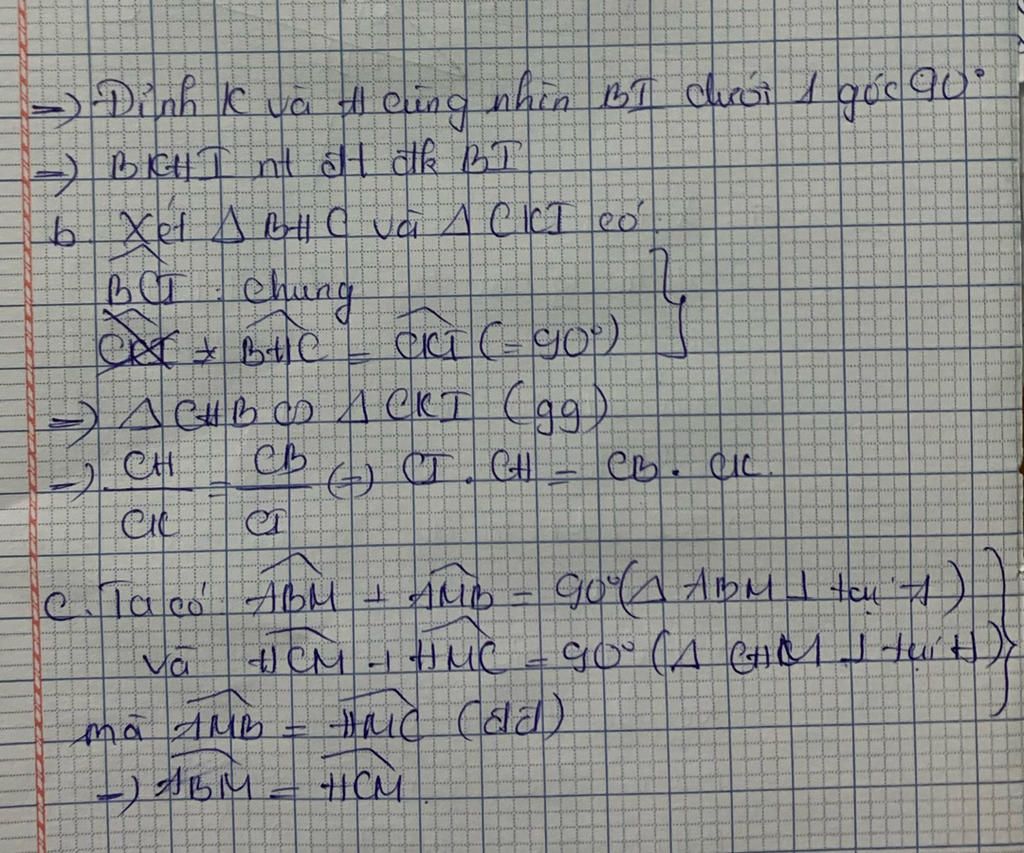 =) Đỉnh K và H cùng nhìn BI dưới 1 góc 90°
=) BKHI nt đt đk BI
b. Xét Δ BHC và Δ CKI có
BCI : chung
BHC = CKI (= 90°)
=) Δ CHB ∽ Δ CKI (gg)
=) CH/CK = CB/CI (=) CI . CH = CB . CK
c. Ta có ABM + AMB = 90° (Δ ABM ⊥ tại A)
và HCM + HMC = 90° (Δ CHM ⊥ tại H)
mà AMB = HMC (đđ)
=) ABM = HCM